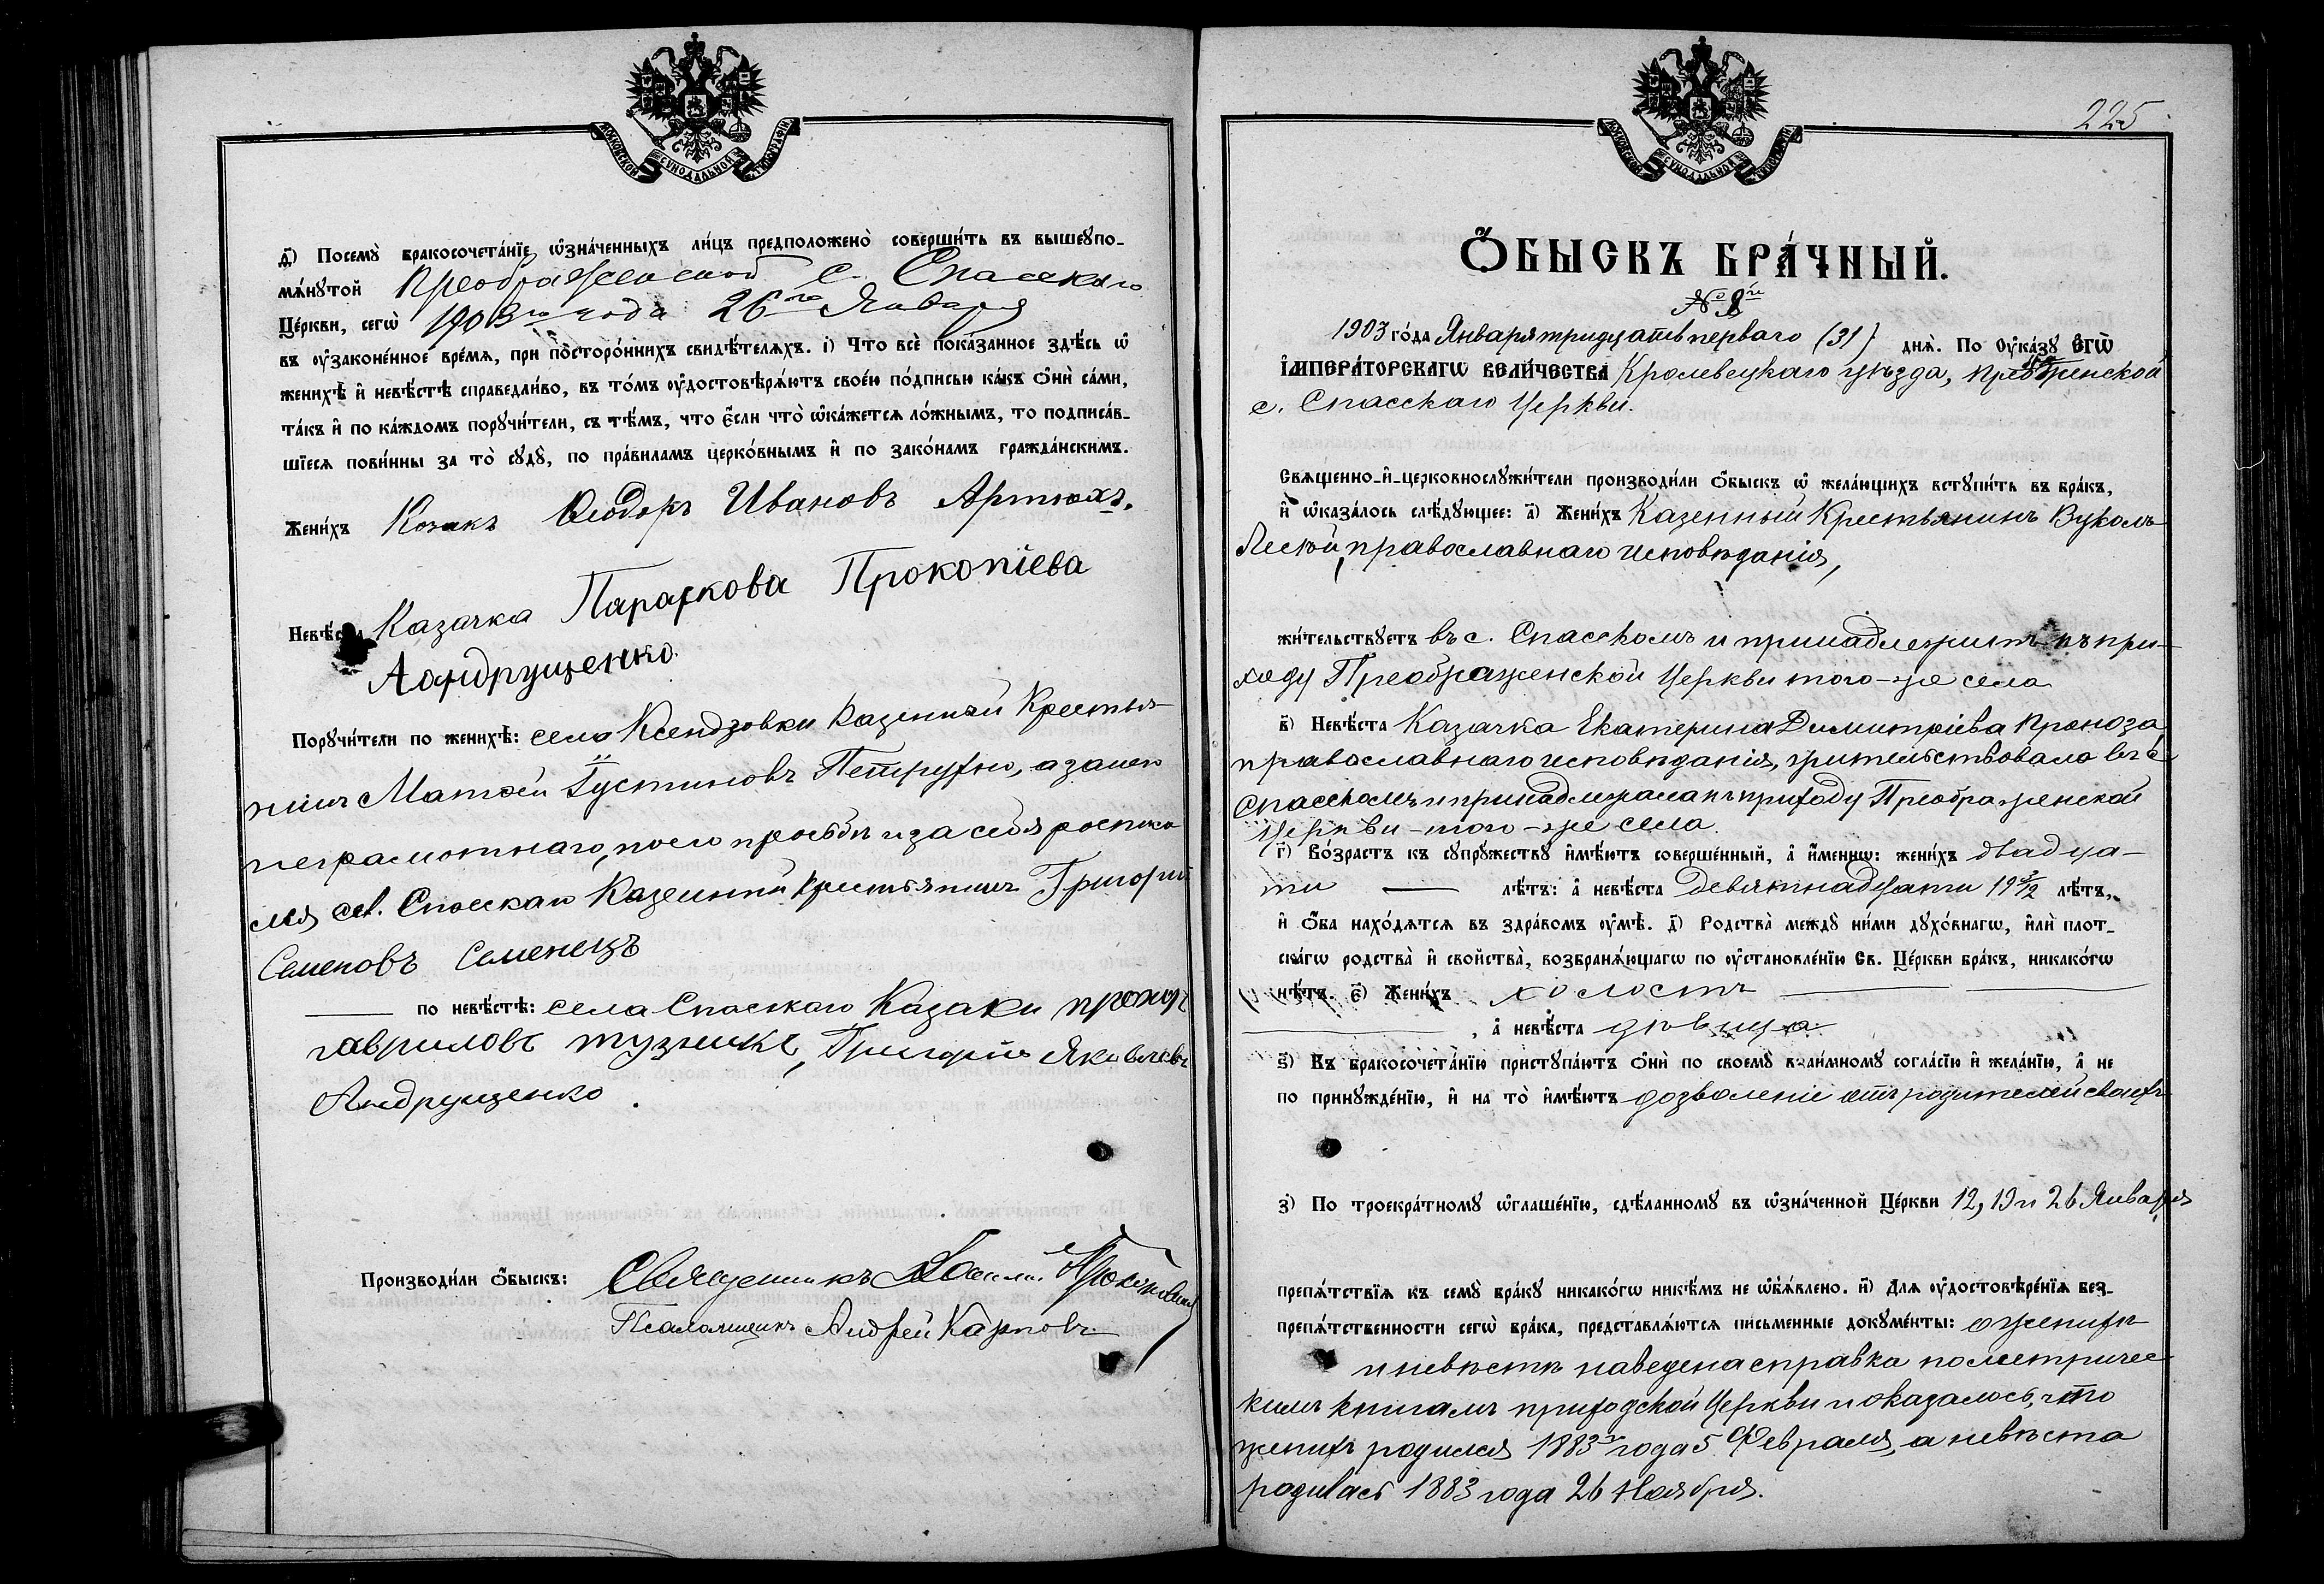 МОСКОВСКОЙ СУНОДАЛЬНОЙ ТИПОГРАФІИ.
д҃) Посемꙋ̀ бракосочета́нїе ѡ҆зна́ченныхъ ли́цъ предположено̀ соверши́ть въ вышеꙋпо-
мѧ́нꙋтой Преображенской с. Спаскаго
Це́ркви, сегѡ̀ 1903го года 26го Января
въ ᲂу҆законе́нное вре́мѧ, при посторо́ннихъ свидѣ́телѧхъ. і҃) Что всѐ пока́занное здѣ́сь ѡ҆
женихѣ̀ и҆ невѣ́стѣ справедли́во, въ то́мъ ᲂу҆достовѣрѧ́ютъ свое́ю по́дписью ка́къ ѻ҆нѝ са́ми,
та́къ и҆ по ка́ждомъ порꙋчи́тели, съ тѣ́мъ, что є҆́сли что̀ ѡ҆ка́жетсѧ ло́жнымъ, то подписа́в-
шїесѧ пови́нны за то̀ сꙋдꙋ̀, по пра́виламъ церко́внымъ и҆ по зако́намъ гражда́нскимъ.
Жени́хъ Козакъ Ѳеодоръ Ивановъ Артюхъ.
Невѣ́ста Казачка Параскова Прокопіева
Андрущенко.
Порꙋчи́тели по женихѣ̀: села Ксендзовки Казенный Крестья-
нинъ Матѳей Іустиновъ Петрухно, а за него
неграмотнаго, по его просьбѣ и за себя росписа
лся сел. Спасскаго Казенный Крестьянинъ Григорій
Семеновъ Семенецъ
по невѣ́стѣ: села Спаскаго Казаки прохор
гавриловъ тузикъ, Григорій Яковлевъ
Андрущенко.
Производи́ли ѻ҆́быскъ: Священникъ Василій
Псаломщикъ Андрей Карповъ
225
МОСКОВСКОЙ СУНОДАЛЬНОЙ ТИПОГРАФІИ.
Ѻ҆́БЫСКЪ БРА́ЧНЫЙ.
№ 8й
1903 го́да Января тридцать перваго (31) днѧ̀. По Оу҆ка́зꙋ Є҆гѡ̀
І҆мпера́торскагѡ Вели́чества Кролевецкаго уѣзда, Преображенской
с. Спасскаго Церкви.
Свѧщенно-и҆-церковнослꙋжи́тели производи́ли ѻ҆́быскъ ѡ҆ жела́ющихъ встꙋпи́ть въ бра́къ,
и҆ ѡ҆каза́лось слѣ́дꙋющее: а҃) Жени́хъ Казенный Крестьянинъ Вуколъ
православнаго исповѣданія,
жи́тельствꙋетъ въ с. Спасскомъ и принадлежитъ къ при-
ходу Преображенской Церкви того-же села
в҃) Невѣ́ста Казачка Екатерина Димитріева Проноза
православнаго исповѣданія, жительствовала въ с.
Спасскомъ и принадлежала къ приходу Преображенской
Церкви-того-же села.
г҃) Во́зрастъ къ сꙋпрꙋ́жествꙋ и҆мѣ́ютъ соверше́нный, а҆ и҆́меннѡ: жени́хъ двадца-
ти лѣ́тъ: а҆ невѣ́ста девятнадцати 19 3/12 лѣ́тъ,
и҆ ѻ҆́ба нахо́дѧтсѧ въ здра́вомъ ᲂу҆мѣ̀. д҃) Родства̀ междꙋ̀ ни́ми дꙋхо́внагѡ, и҆лѝ плот-
ска́гѡ родства̀ и҆ свойства̀, возбранѧ́ющагѡ по ᲂу҆становле́нїю Св. Це́ркви бра́къ, никако́гѡ
нѣ́тъ. є҃) Жени́хъ холостъ
, а҆ невѣ́ста дѣвица.
ѕ҃) Въ бракосочета́нїю пристꙋпа́ютъ ѻ҆нѝ по своемꙋ̀ взаи́мномꙋ согла́сїю и҆ жела́нїю, а҆ не
по принꙋжде́нїю, и҆ на то̀ и҆мѣ́ютъ дозволеніе отъ родителей своихъ
з҃) По троекра́тномꙋ ѡ҆глаше́нїю, сдѣ́ланномꙋ въ ѡ҆зна́ченной Це́ркви 12, 19 и 26 Января
препѧ́тствїѧ къ семꙋ̀ бра́кꙋ никако́гѡ никѣ́мъ не ѡ҆б̾ѧ́влено. и҃) Длѧ ᲂу҆достовѣре́нїѧ без-
препѧ́тственности сегѡ̀ бра́ка, представлѧ́ютсѧ письменные докꙋме́нты: о женихѣ
и невѣстѣ наведена справка по метричес-
кимъ книгамъ приходской Церкви и оказалось, что
женихъ родился 1883го года 5 Февраля, а невѣста
родилась 1883 года 26 Ноября.